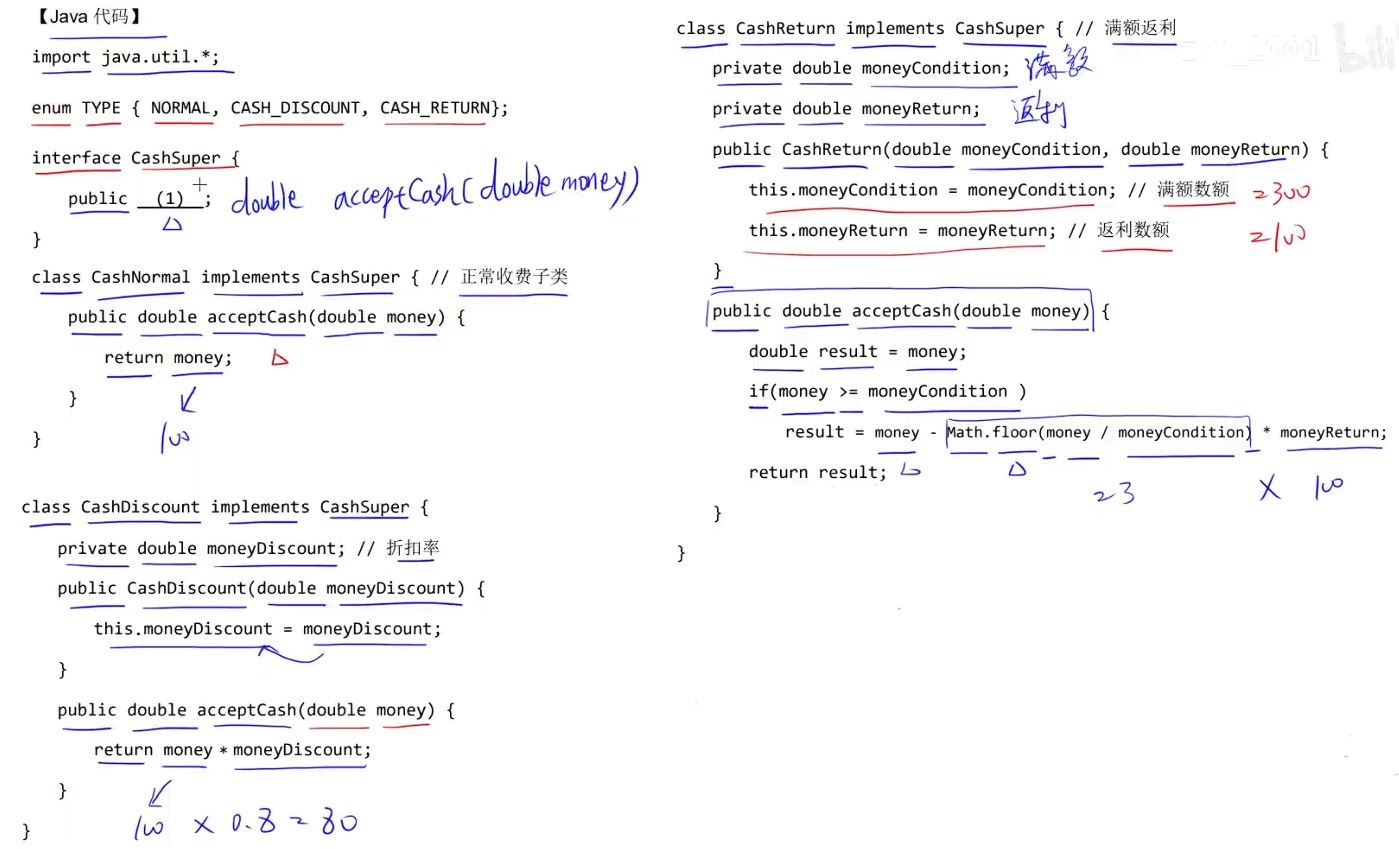 【Java 代码】
import java.util.*;
enum TYPE { NORMAL, CASH_DISCOUNT, CASH_RETURN};
interface CashSuper {
public __(1)__; double acceptCash(double money)
}
class CashNormal implements CashSuper { // 正常收费子类
public double acceptCash(double money) {
return money;
}
100
}
class CashDiscount implements CashSuper {
private double moneyDiscount; // 折扣率
public CashDiscount(double moneyDiscount) {
this.moneyDiscount = moneyDiscount;
}
public double acceptCash(double money) {
return money * moneyDiscount;
}
100 × 0.8 = 80
}
class CashReturn implements CashSuper { // 满额返利
private double moneyCondition; 满额
private double moneyReturn; 返利
public CashReturn(double moneyCondition, double moneyReturn) {
this.moneyCondition = moneyCondition; // 满额数额 =300
this.moneyReturn = moneyReturn; // 返利数额 =100
}
public double acceptCash(double money) {
double result = money;
if(money >= moneyCondition )
result = money - Math.floor(money / moneyCondition) * moneyReturn;
return result;
=3 × 100
}
}
bili